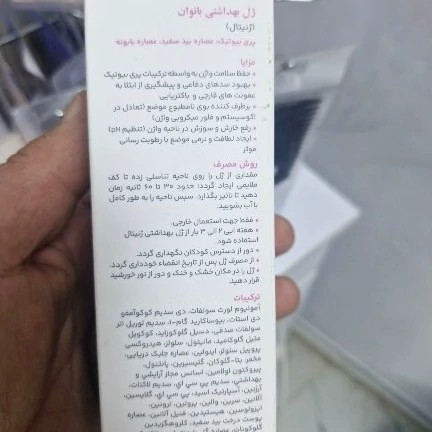 ژل بهداشتی بانوان
(ژنیتال)
پری بیوتیک، عصاره بید سفید، عصاره بابونه
مزایا
• حفظ سلامت واژن به واسطه ترکیبات پری بیوتیک
• بهبود سدهای دفاعی و پیشگیری از ابتلا به
عفونت های قارچی و باکتریایی
• برطرف کننده بوی نامطبوع موضع (تعادل در
اکوسیستم و فلور میکروبی واژن)
• رفع خارش و سوزش در ناحیه واژن (تنظیم pH)
• ایجاد لطافت و نرمی موضع با رطوبت رسانی
موثر
روش مصرف
مقداری از ژل را روی ناحیه تناسلی زده تا کف
ملایمی ایجاد گردد؛ حدود ۳۰ تا ۶۰ ثانیه زمان
دهید تا تاثیر بگذارد. سپس ناحیه را به طور کامل
با آب بشویید.
• فقط جهت استعمال خارجی.
• هفته ایی ۲ الی ۳ بار از ژل بهداشتی ژنیتال
استفاده شود.
• دور از دسترس کودکان نگهداری گردد.
• از مصرف ژل پس از تاریخ انقضاء خودداری گردد.
• ژل را در مکان خشک و خنک و دور از نور خورشید
قرار دهید.
ترکیبات
آمونیوم لورث سولفات، دی سدیم کوکوآمفو
دی استات، بیوساکارید گام-۱، سدیم لوریل اتر
سولفات صدفی، دسیل گلوکزاید، کوکویل
متیل گلوکامید، مانیتول، سلولز، هیدروکسی
پروپیل سلولز، اینولین، عصاره جلبک دریایی،
مخمر، بتا-گلوکان، گلیسیرین، پانتنول،
پیروکتون اولامین، اسانس مجاز آرایشی و
بهداشتی، سدیم پی سی ای، سدیم لاکتات،
آرژنین، آسپارتیک اسید، پی سی ای، گلایسین،
آلانین، سرین، والین، پرولین، ترئونین،
ایزولوسین، هیستیدین، فنیل آلانین، عصاره
پوست درخت بید سفید، کلروهگزیدین
گلوکونات، عصاره